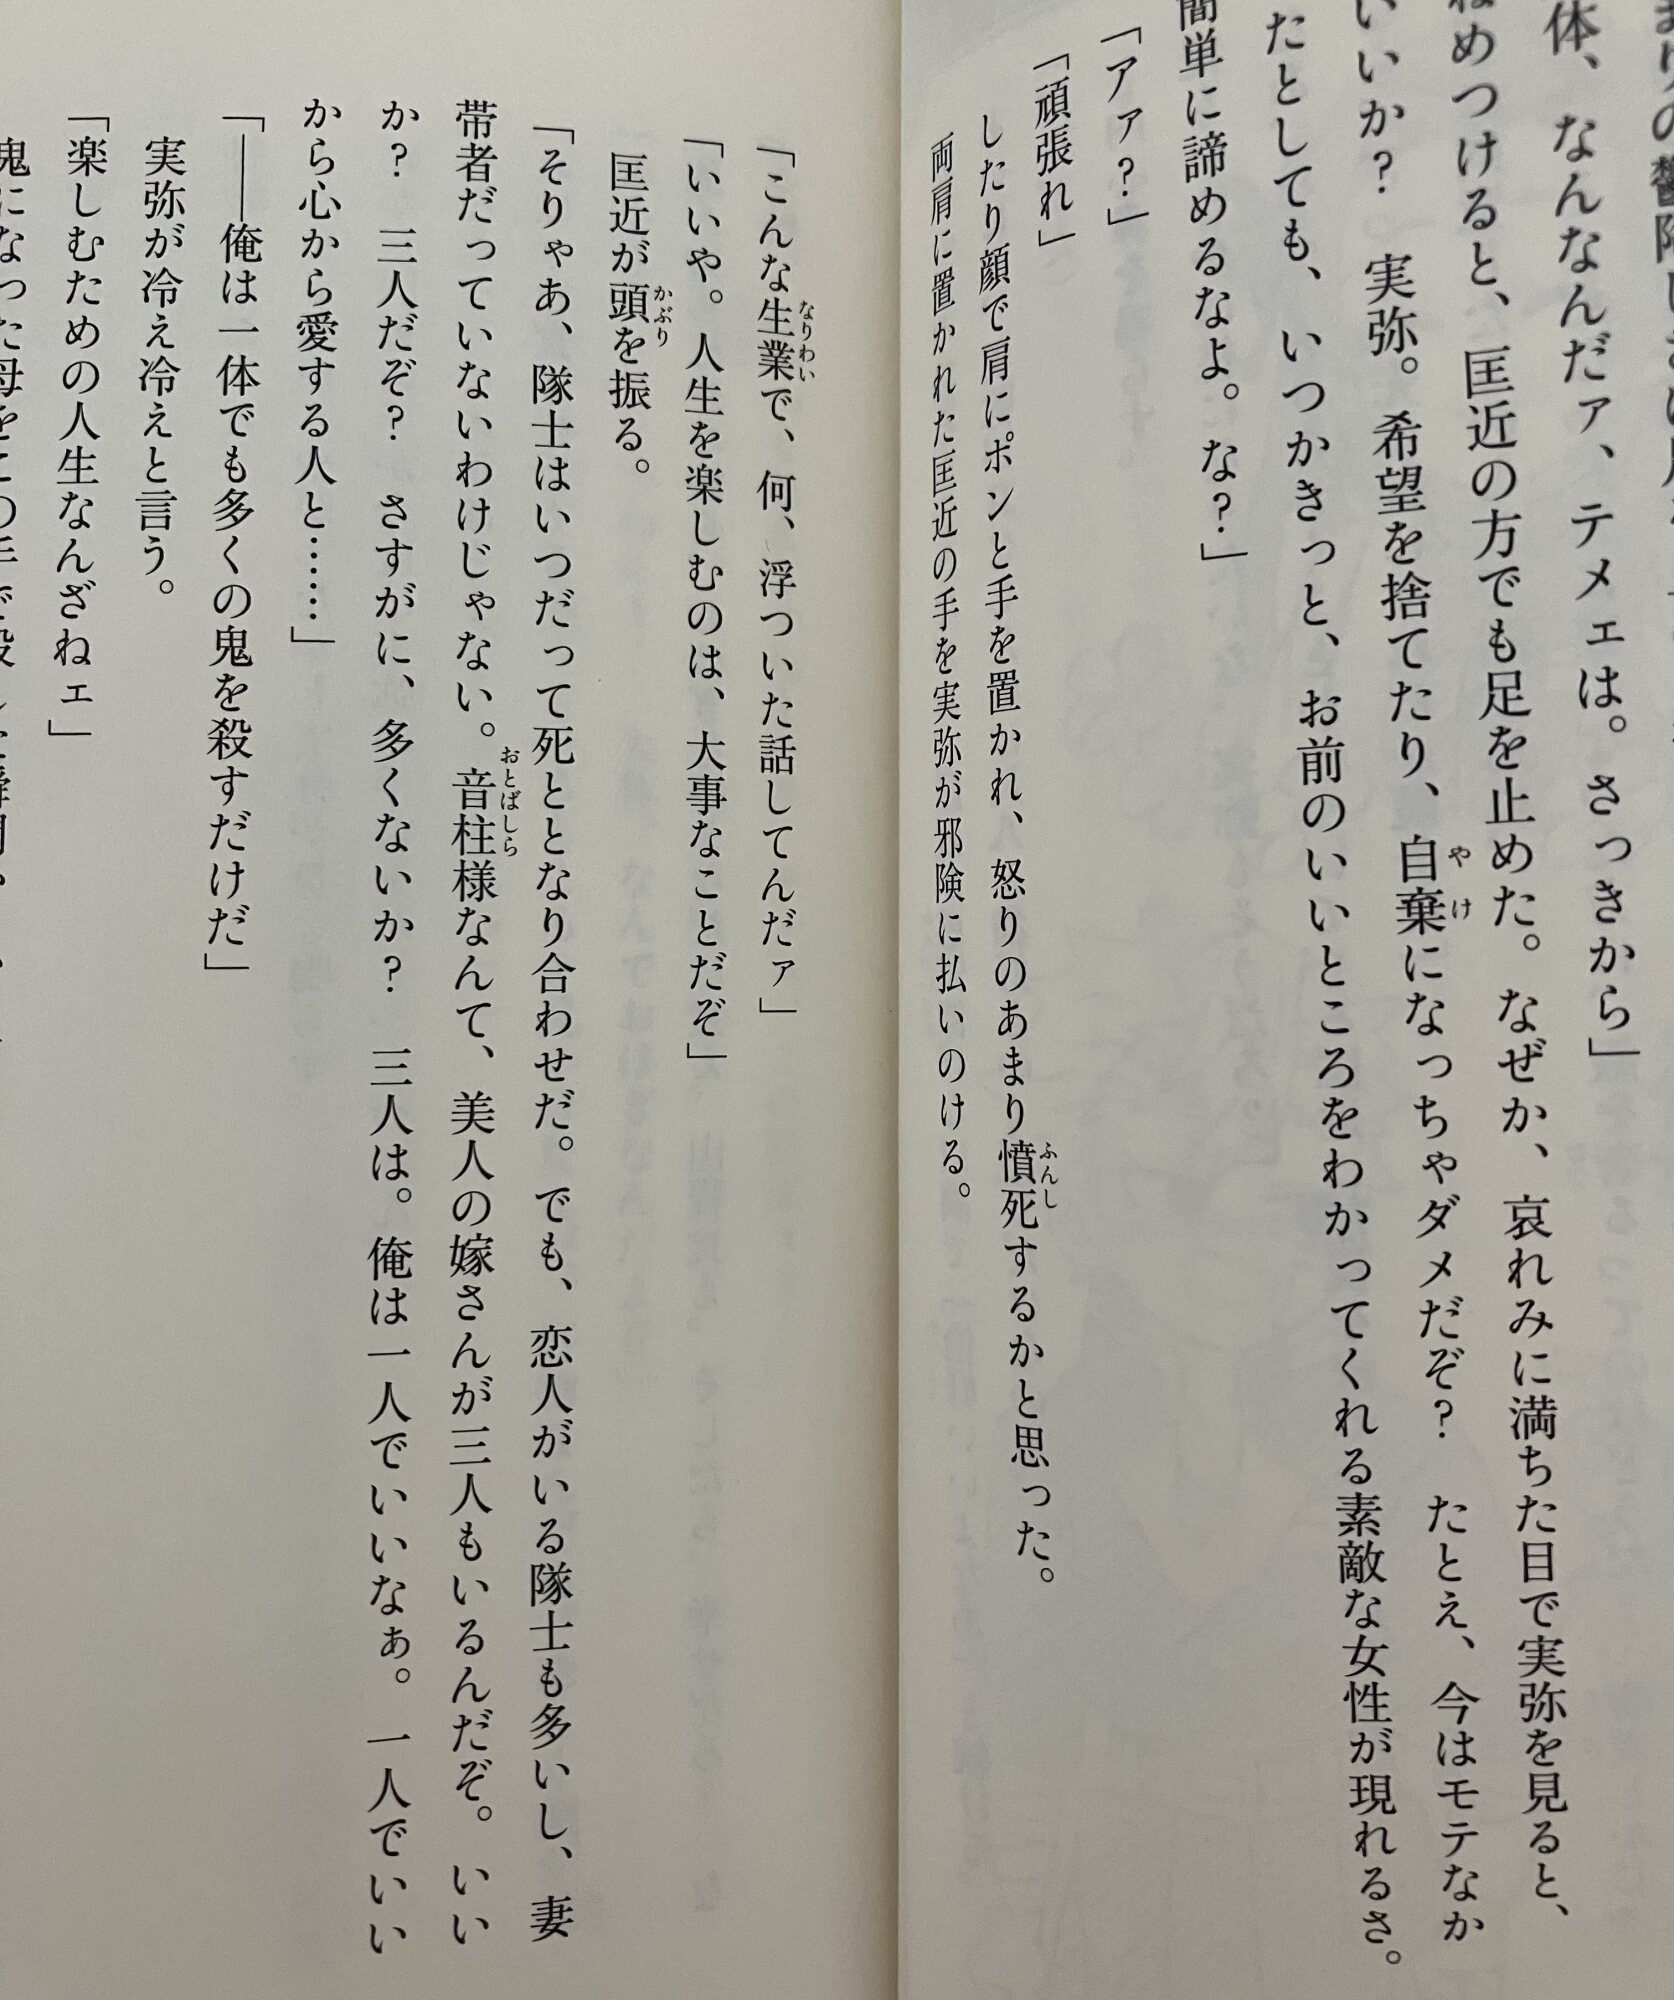 体、なんなんだァ、テメェは。さっきから」
ねめつけると、匡近の方でも足を止めた。なぜか、哀れみに満ちた目で実弥を見ると、
いいか？　実弥。希望を捨てたり、自棄になっちゃダメだぞ？　たとえ、今はモテなか
ったとしても、いつかきっと、お前のいいところをわかってくれる素敵な女性が現れるさ。
簡単に諦めるなよ。な？」
「アァ？」
「頑張れ」
したり顔で肩にポンと手を置かれ、怒りのあまり憤死するかと思った。
両肩に置かれた匡近の手を実弥が邪険に払いのける。
「こんな生業で、何、浮ついた話してんだァ」
「いいや。人生を楽しむのは、大事なことだぞ」
匡近が頭を振る。
「そりゃあ、隊士はいつだって死ととなり合わせだ。でも、恋人がいる隊士も多いし、妻
帯者だっていないわけじゃない。音柱様なんて、美人の嫁さんが三人もいるんだぞ。いい
か？　三人だぞ？　さすがに、多くないか？　三人は。俺は一人でいいなぁ。一人でいい
から心から愛する人と……」
「――俺は一体でも多くの鬼を殺すだけだ」
実弥が冷え冷えと言う。
「楽しむための人生なんざねェ」
鬼になった母をこの手で殺し